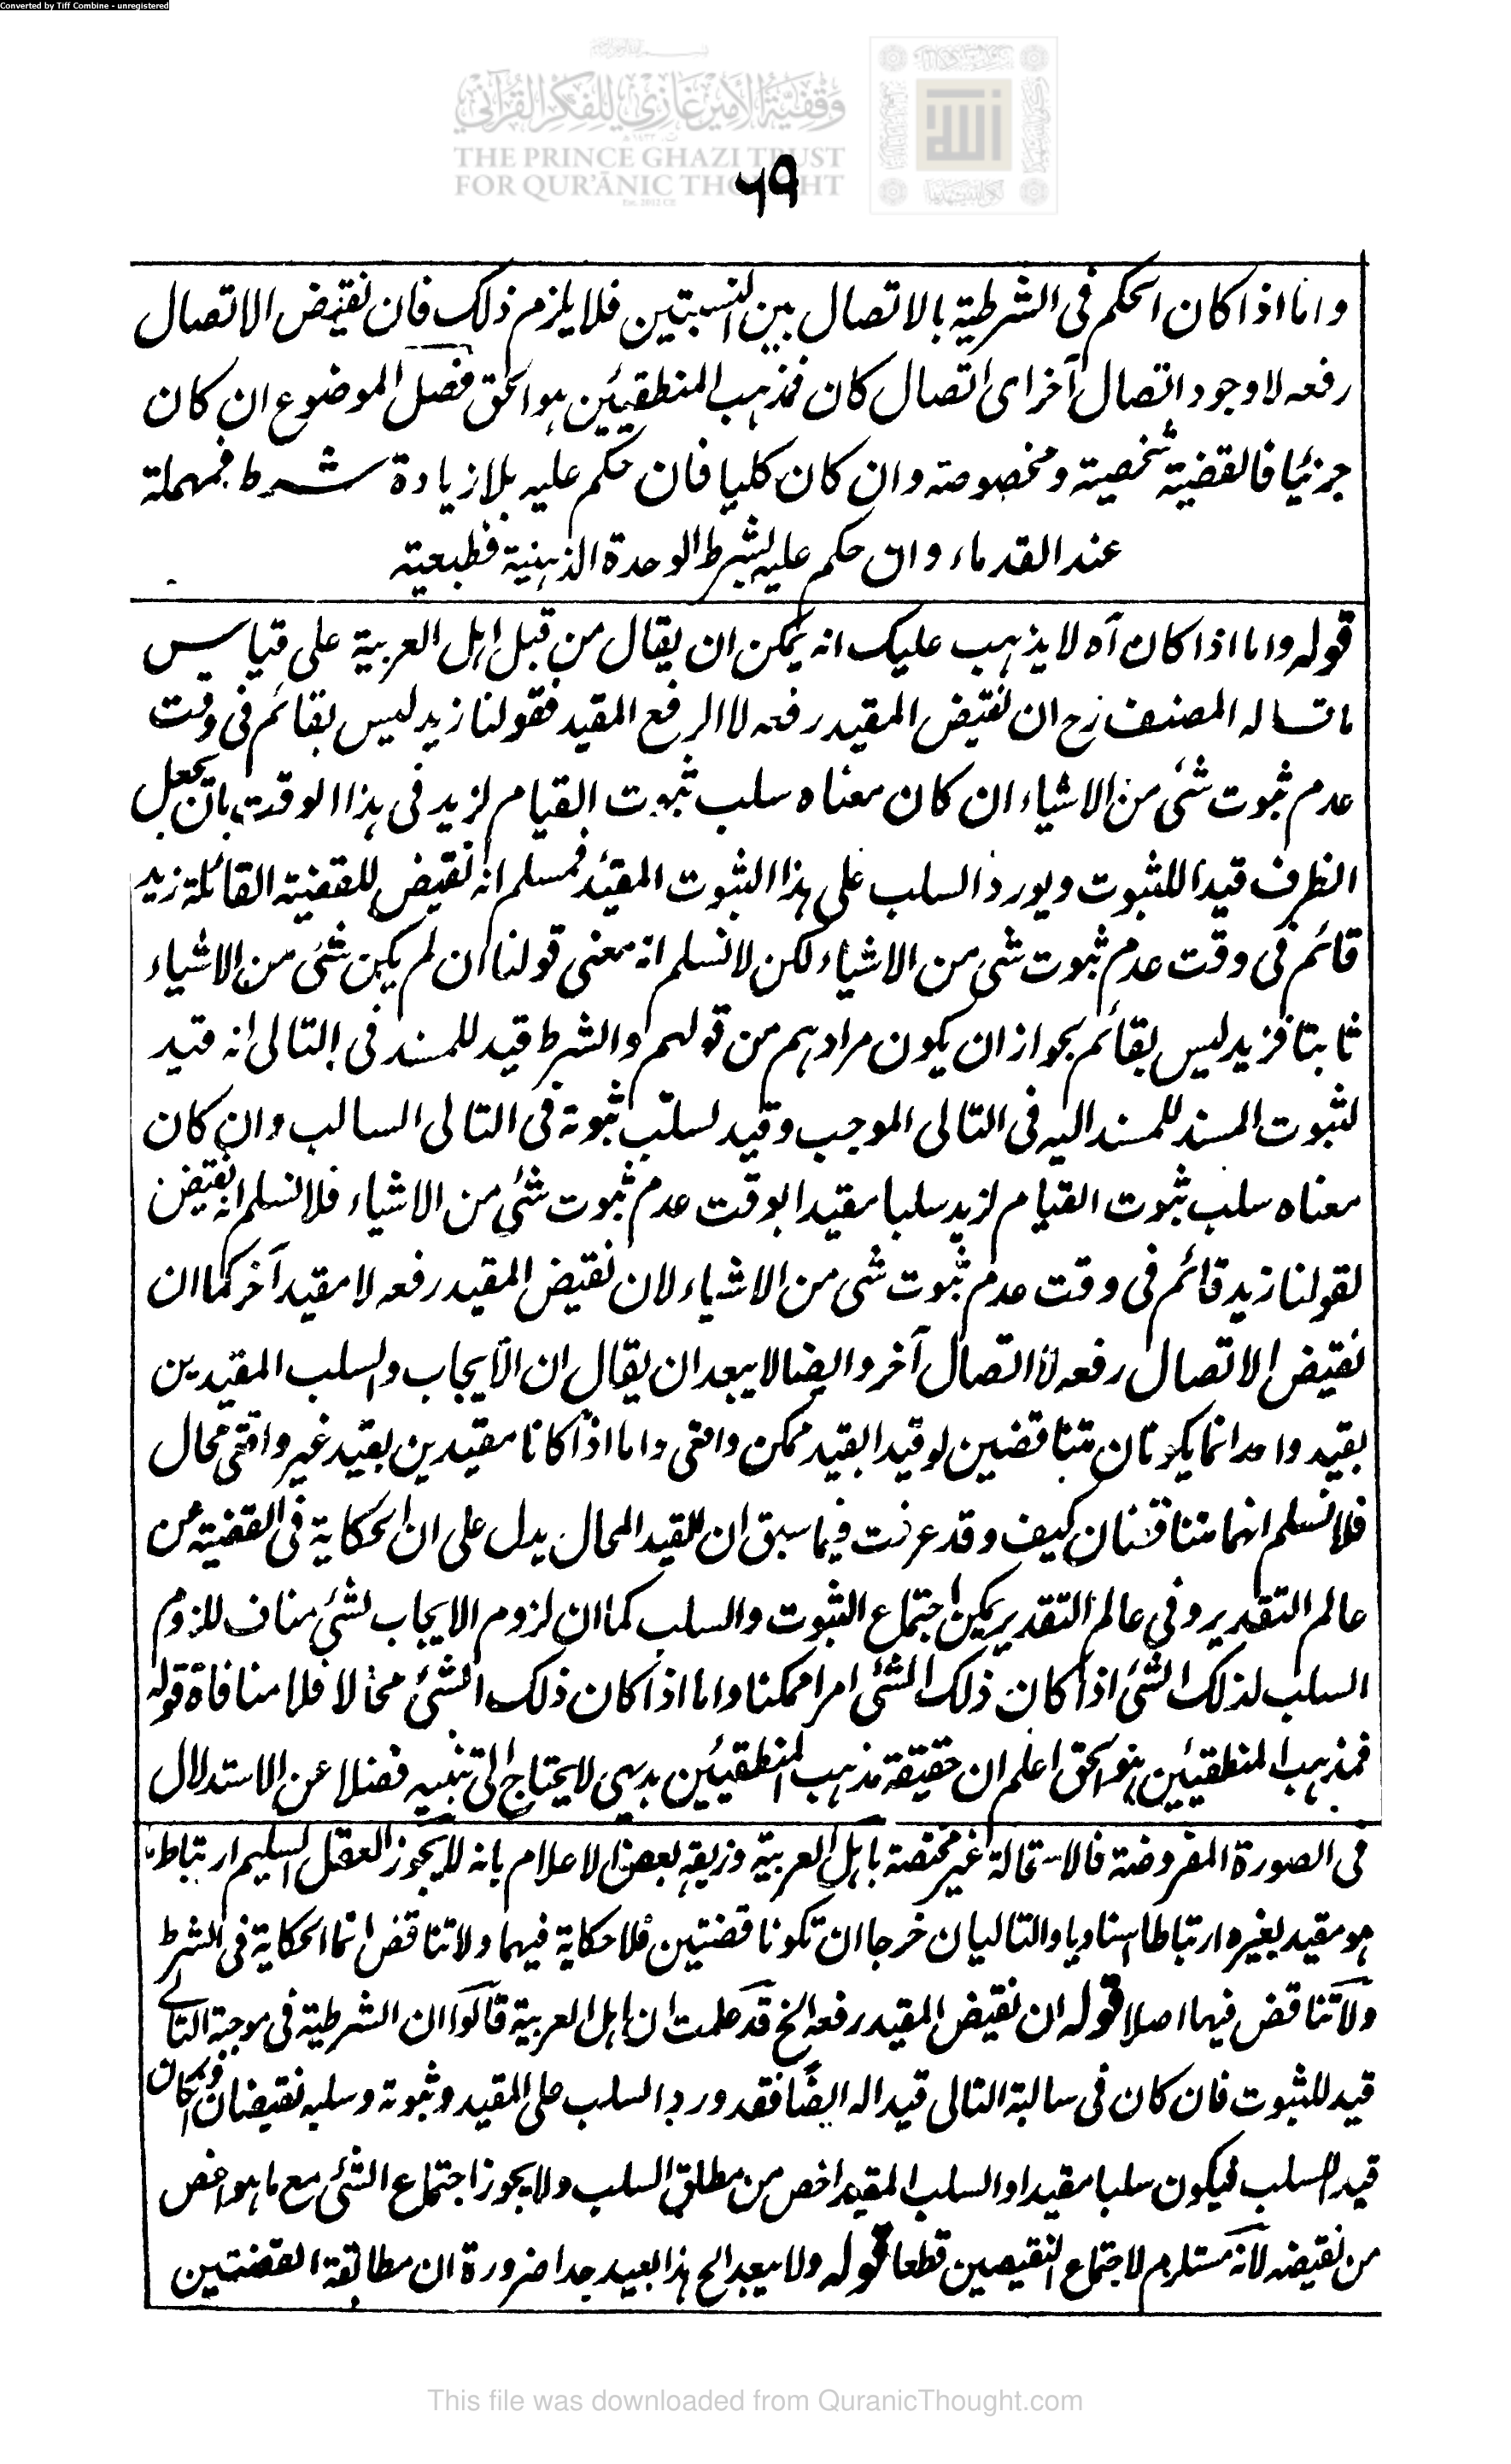 Converted by Tiff Combine - unregistered
وقفية الأمير غازي للفكر القرآني
THE PRINCE GHAZI TRUST
FOR QUR'ĀNIC THOUGHT
٦٩
واما اذا كان الحكم فى الشرطية بالاتصال بين النسبتين فلا يلزم ذلك فان نقيض الاتصال
رفعه لا وجود اتصال آخر اى اتصال كان فمذہب المنطقيين ہو الحق فصل الموضوع ان كان
جزئيا فالقضية شخصية ومخصوصة وان كان كليا فان حكم عليه بلا زيادة شرط فمهملة
عند القدماء وان حكم عليه بشرط الوحدة الذہنية فطبعية
قوله واما اذا كان آه لا يذہب عليك انه يمكن ان يقال من قبل اہل العربية على قياس
ما قاله المصنف رح ان نقيض المقيد رفعه لا الرفع المقيد فقولنا زيد ليس بقائم فى وقت
عدم ثبوت شئ من الاشياء ان كان معناه سلب ثبوت القيام لزيد فى ہذا الوقت بان يجعل
الظرف قيدا للثبوت ويورد السلب على ہذا الثبوت المقيد فمسلم انه نقيض للقضية القائلة زيد
قائم فى وقت عدم ثبوت شئ من الاشياء لكن لا نسلم انه معنى قولنا ان لم يكن شئ من الاشياء
ثابتا فزيد ليس بقائم بجواز ان يكون مرادہم من قولہم والشرط قيد للمسند فى التالى انه قيد
لثبوت المسند للمسند اليه فى التالى الموجب وقيد لسلب ثبوته فى التالى السالب وان كان
معناه سلب ثبوت القيام لزيد سلبا مقيدا بوقت عدم ثبوت شئ من الاشياء فلا نسلم انه نقيض
لقولنا زيد قائم فى وقت عدم ثبوت شئ من الاشياء لان نقيض المقيد رفعه لا مقيد آخر كما ان
نقيض الاتصال رفعه لا اتصال آخر وايضا لا يبعد ان يقال ان الايجاب والسلب المقيدين
بقيد واحد انما يكونان متناقضين لو قيدا بقيد ممكن واقعى واما اذا كانا مقيدين بقيد غير واقعى محال
فلا نسلم انهما متناقضان كيف وقد عرفت فيما سبق ان القيد المحال يدل على ان الحكاية فى القضية عن
عالم التقدير وفى عالم التقدير يمكن اجتماع الثبوت والسلب كما ان لزوم الايجاب لشئ مناف للزوم
السلب لذلك الشئ اذا كان ذلك الشئ امرا ممكنا واما اذا كان ذلك الشئ محالا فلا منافاة قوله
فمذہب المنطقيين ہو الحق اعلم ان حقيقة مذہب المنطقيين بديہى لا يحتاج الى تنبيه فضلا عن الاستدلال
فى الصورة المفروضة فالاستحالة غير مختصة باہل العربية وزيفه بعض الاعلام بانه لا يجوز العقل السليم ارتباط ما
ہو مقيد بغيره ارتباطا اسناديا والتاليان خرجا ان تكونا قضتين فلا حكاية فيهما ولا تناقض انما الحكاية فى الشرط
ولا تناقض فيهما اصلا قوله ان نقيض المقيد رفعه الخ قد علمت ان اہل العربية قالوا ان الشرطية فى موجبة التالى
قيد للثبوت فان كان فى سالبة التالى قيدا له ايضا فقد ورد السلب على المقيد وثبوته وسلبه نقيضان وان كان
قيد السلب فيكون سلبا مقيدا والسلب المقيد اخص من مطلق السلب ولا يجوز اجتماع الشئ مع ما ہو اخص
من نقيضه لانه مستلزم لاجتماع النقيضين قطعا قوله ولا يبعد الخ ہذا بعيد جدا ضرورة ان مطابقة القضتين
This file was downloaded from QuranicThought.com